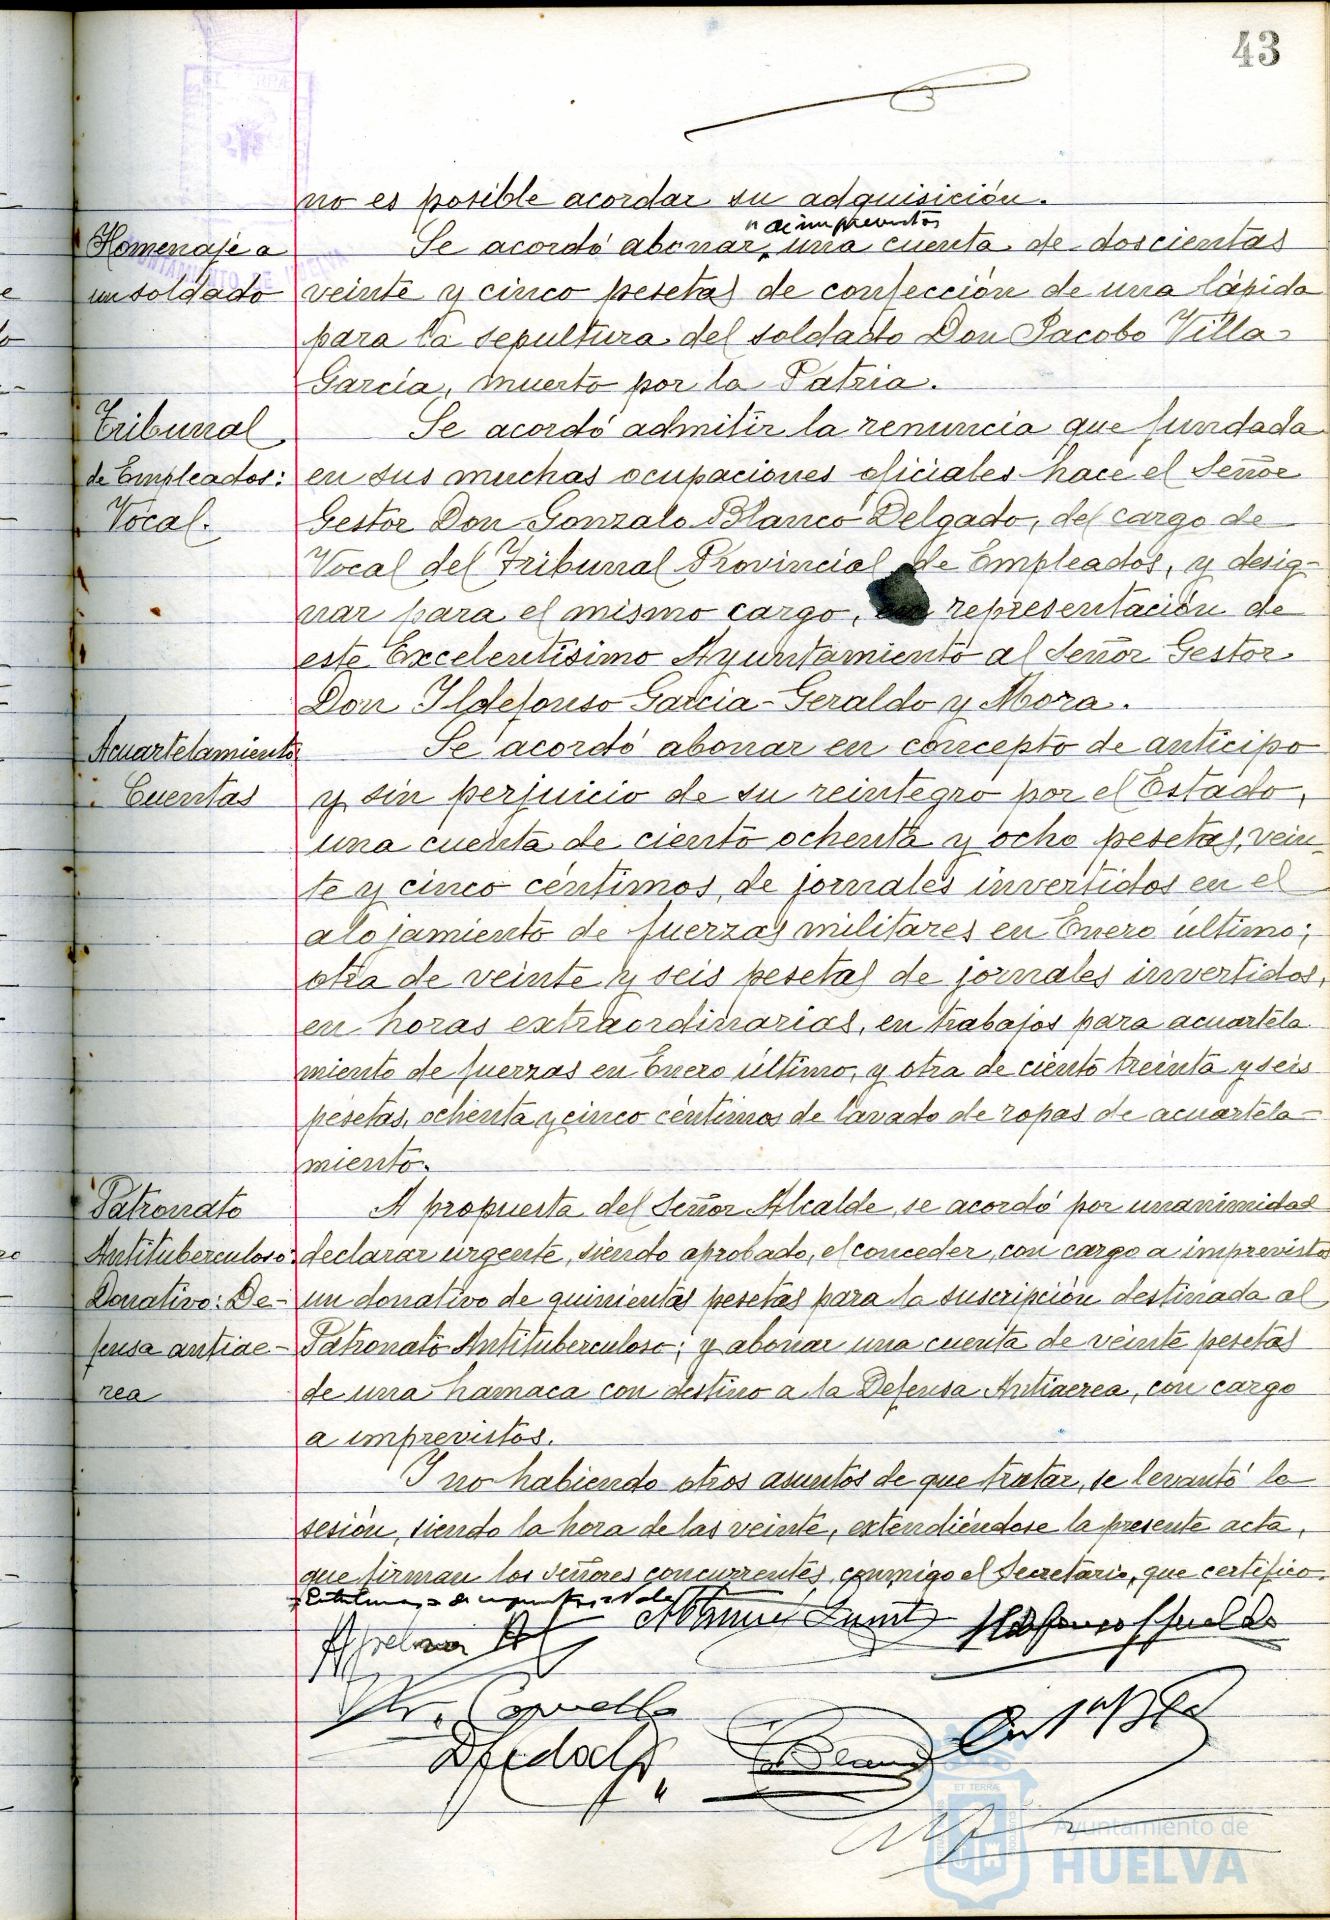 43
no es posible acordar su adquisición.
Homenaje a
un soldado
" de imprevistos
Se acordó abonar una cuenta de doscientas
veinte y cinco pesetas de confección de una lápida
para la sepultura del soldado Don Jacobo Villa
García, muerto por la Patria.
Tribunal
de Empleados:
Vocal.
Se acordó admitir la renuncia que fundada
en sus muchas ocupaciones oficiales hace el Señor
Gestor Don Gonzalo Blanco Delgado, del cargo de
Vocal del Tribunal Provincial de Empleados, y desig-
nar para el mismo cargo, en representación de
este Excelentísimo Ayuntamiento al Señor Gestor
Don Ildefonso García-Geraldo y Mora.
Acuartelamiento
Cuentas
Se acordó abonar en concepto de anticipo
y sin perjuicio de su reintegro por el Estado,
una cuenta de ciento ochenta y ocho pesetas, vein-
te y cinco céntimos, de jornales invertidos en el
alojamiento de fuerzas militares en Enero último;
otra de veinte y seis pesetas de jornales invertidos,
en horas extraordinarias, en trabajos para acuartela
miento de fuerzas en Enero último, y otra de ciento treinta y seis
pesetas, ochenta y cinco céntimos de lavado de ropas de acuartela-
miento.
Patronato
Antituberculoso:
Donativo: De-
fensa antiae-
rea
A propuesta del Señor Alcalde, se acordó por unanimidad
declarar urgente, siendo aprobado, el conceder, con cargo a imprevistos
un donativo de quinientas pesetas para la suscripción destinada al
Patronato Antituberculoso; y abonar una cuenta de veinte pesetas
de una hamaca con destino a la Defensa Antiaerea, con cargo
a imprevistos.
Y no habiendo otros asuntos de que tratar, se levantó la
sesión, siendo la hora de las veinte, extendiéndose la presente acta,
que firman los señores concurrentes, conmigo el Secretario, que certifico.
Ildefonso Geraldo
ET TERRÆ
Ayuntamiento de
HUELVA